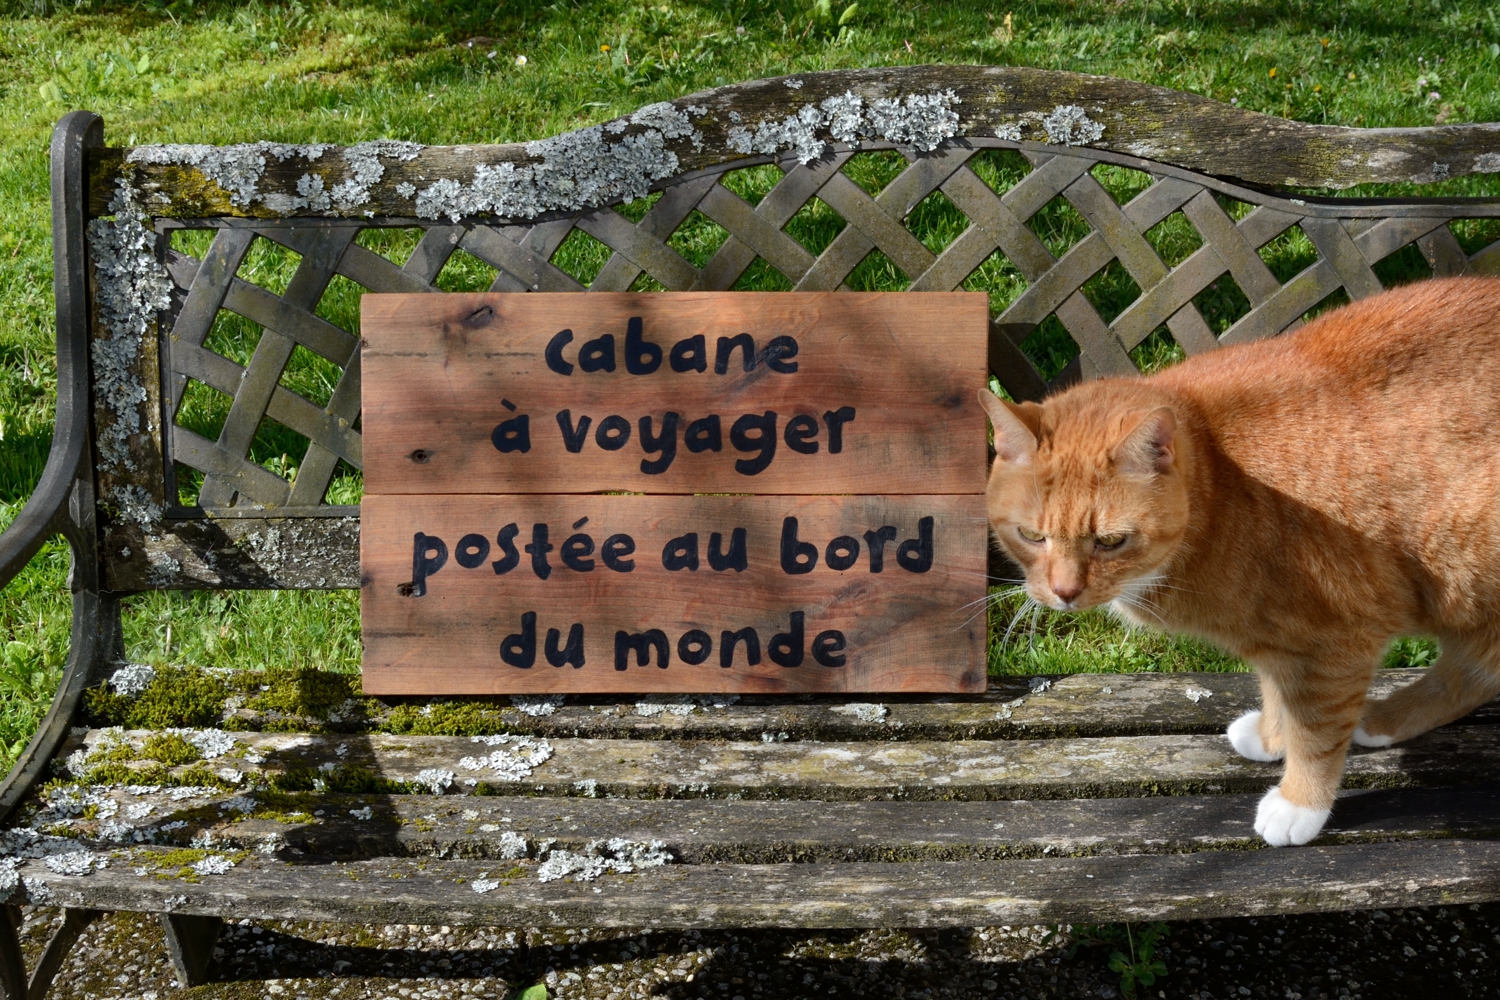 cabane
à voyager
postée au bord
du monde